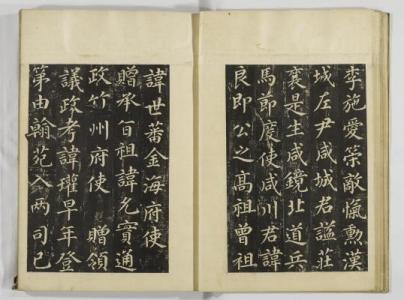 李施愛策敵愾勲漢
城左尹咸城君謚莊
襄是生咸鏡北道兵
馬節度使咸川君諱
良即公之高祖曾祖
諱世蕃金海府使
贈承旨祖諱允實通
政竹州府使 贈領
議政考諱瓘早年登
第由翰苑入兩司已